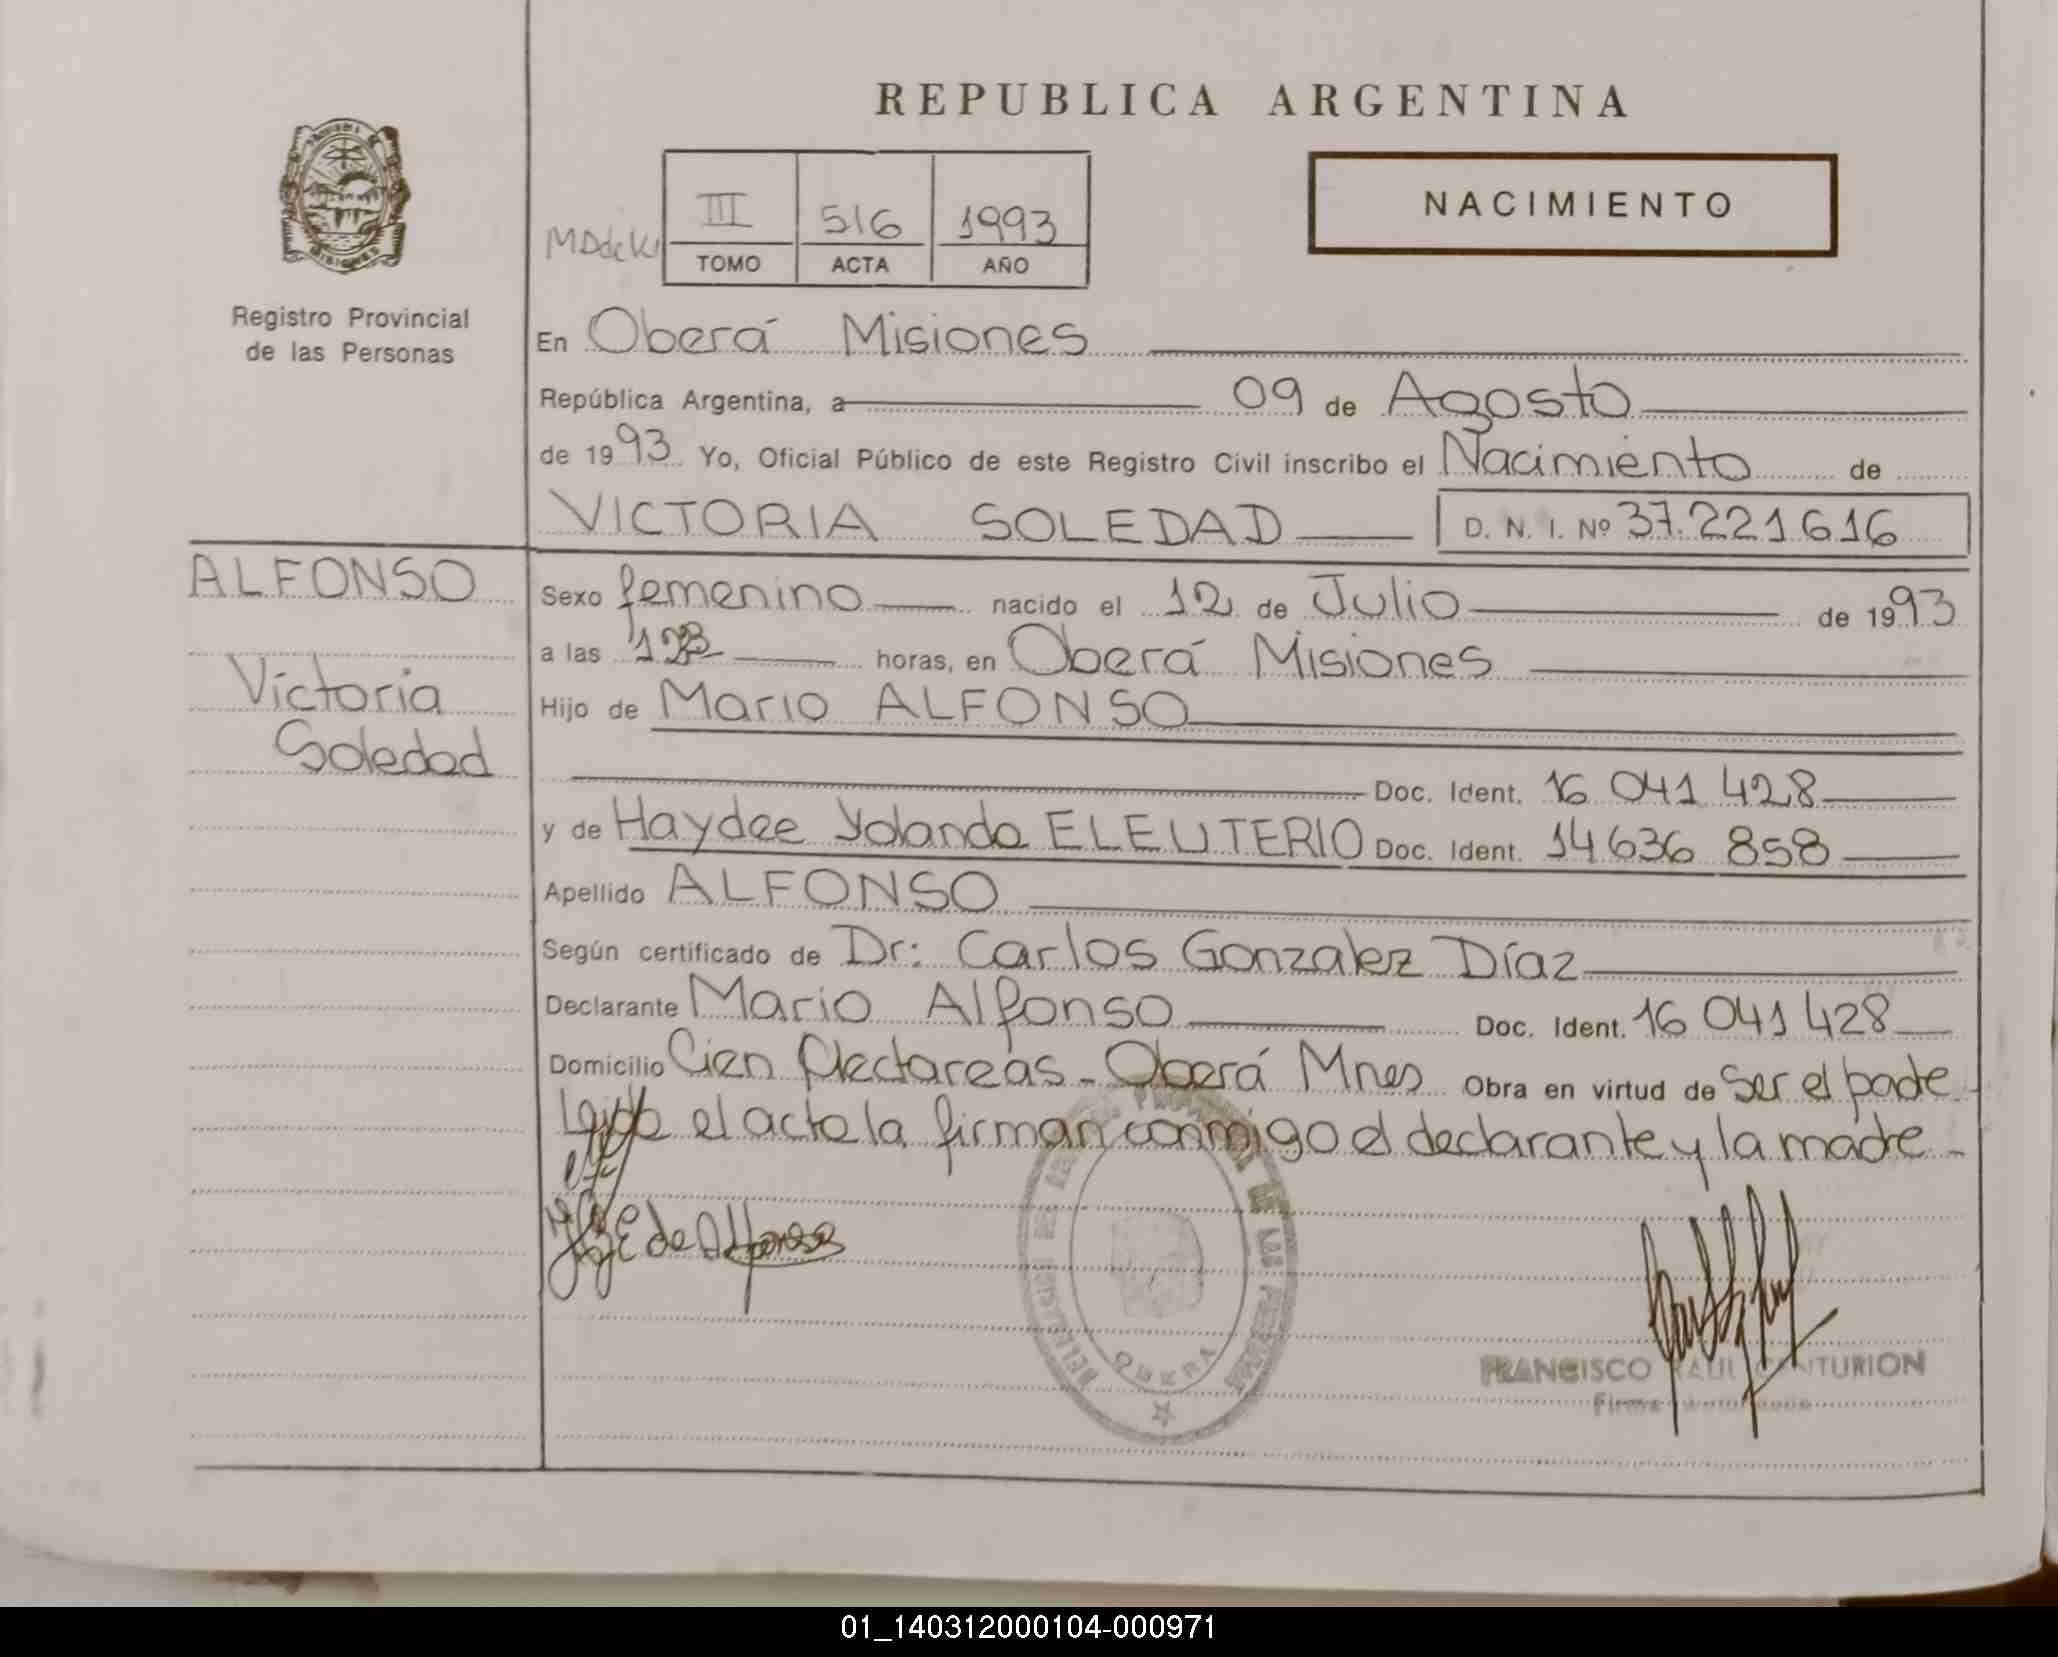 REPUBLICA ARGENTINA
NACIMIENTO
III 516 1993
TOMO ACTA AÑO
MISIONES
Registro Provincial
de las Personas
En Oberá Misiones
República Argentina, a 09 de Agosto
de 1993 Yo, Oficial Público de este Registro Civil inscribo el Nacimiento de
VICTORIA SOLEDAD D. N. I. Nº 37.221616
ALFONSO
Victoria
Soledad
Sexo femenino nacido el 12 de Julio de 1993
a las horas, en Oberá Misiones
Hijo de Mario ALFONSO
Doc. Ident. 16 041 428
y de Haydee Yolanda ELEUTERIO Doc. Ident. 14 636 858
Apellido ALFONSO
Según certificado de Dr: Carlos Gonzalez Díaz
Declarante Mario Alfonso Doc. Ident. 16 041 428
Domicilio Cien Hectareas - Oberá Mnes Obra en virtud de ser el padre
Leida el acta la firman conmigo el declarante y la madre -
de Alfonso
OBERA
FRANCISCO RAUL CENTURION
Firma
01_140312000104-000971